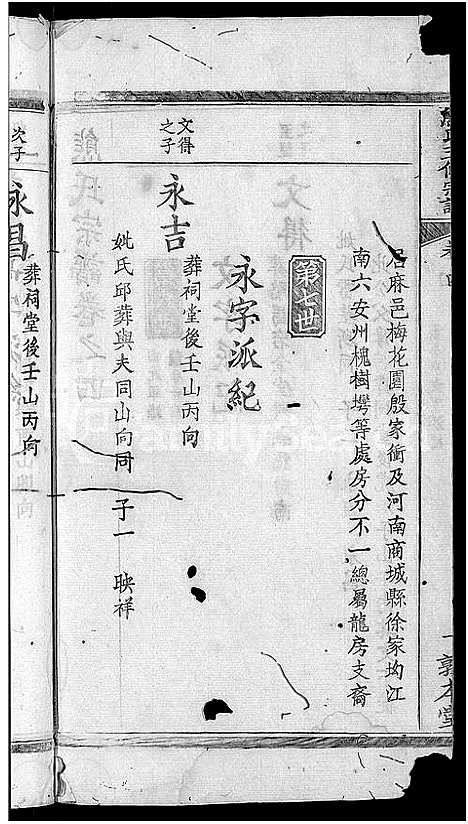 熊氏宗譜
居麻邑梅花園殷家衝及河南商城縣徐家坳江
南六安州槐樹塆等處房分不一總屬龍房支裔
第七世
永字派紀
文得之子
永吉
葬祠堂後壬山丙向
妣氏邱葬與夫同山向同 子一 映祥
次子
永昌
葬祠堂後壬山丙向
一 敦本堂